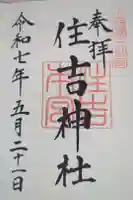 奉拝
住吉神社
令和七年五月二十一日